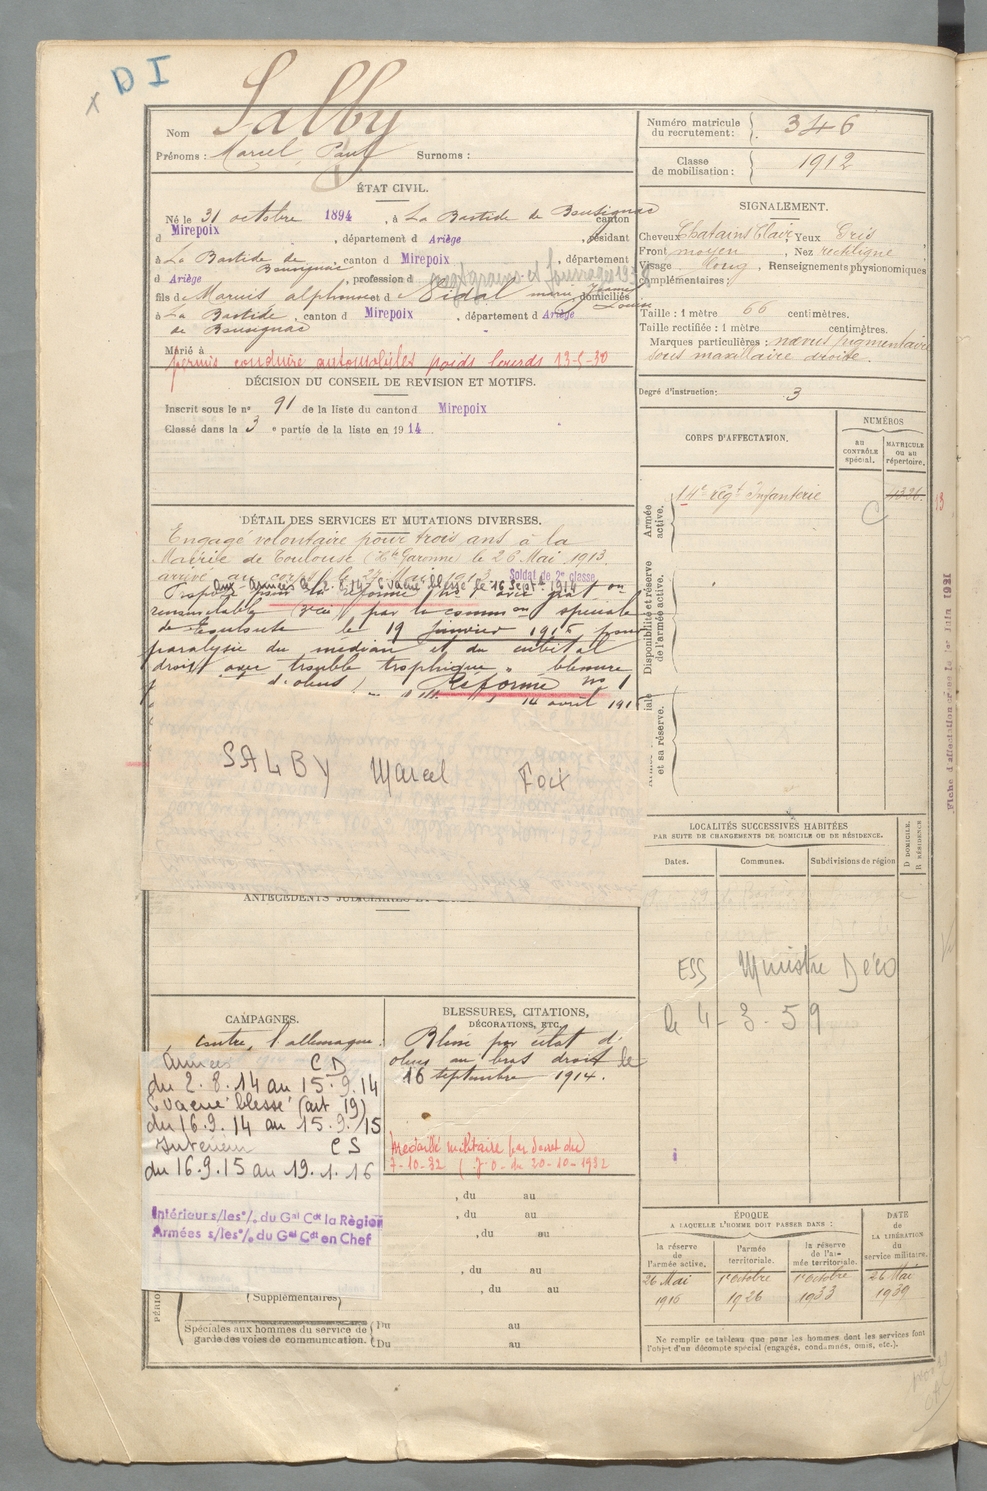 D I
x
Nom Salby
Prénoms : Marcel Paul Surnome :
Numéro matricule du recrutement : 346
Classe de mobilisation : 1912
ÉTAT CIVIL.
Né le 31 octobre 1894, à La Bastide de Bousignac canton
d Mirepoix, département d Ariège, résidant
à La Bastide de Bousignac, canton d Mirepoix, département
d Ariège, profession d
fils de Marius alphonse et d Vidal marie Jeanne Louise domiciliés
à La Bastide de Bousignac, canton d Mirepoix, département d Ariège
Marié à
permis conduire automobiles poids lourds 13-5-30
SIGNALEMENT.
Cheveux Chatains Clair, Yeux Gris,
Front moyen, Nez rectiligne
Visage long, Renseignements physionomiques
complémentaires :
Taille : 1 mètre 66 centimètres.
Taille rectifiée : 1 mètre centimètres.
Marques particulières : nœvus pigmentaire
sous maxillaire droite.
Degré d'instruction : 3
DÉCISION DU CONSEIL DE REVISION ET MOTIFS.
Inscrit sous le n° 91 de la liste du canton d Mirepoix
Classé dans la 3 e partie de la liste en 1914
CORPS D'AFFECTATION.
NUMÉROS
au CONTRÔLE spécial.
MATRICULE ou au répertoire.
Armée active.
14e régt Infanterie
1336
C
Disponibilité et réserve de l'armée active.
et sa réserve.
DÉTAIL DES SERVICES ET MUTATIONS DIVERSES.
Engagé volontaire pour trois ans à la
Mairie de Toulouse (Hte Garonne) le 26 Mai 1913
arrivé au corps le
Soldat de 2e classe
aux Armées le 2.8.14 Evacué blessé le 16 Sept. 1914
renouvelable par la common spéciale
de Toulouse le 19 janvier 1916 pour
paralysie du médian et du cubital
droit avec trouble trophique. blessure
d'obus) Réformé no 1
14 avril 191
SALBY Marcel Foix
Fiche d'affectation
Juin 1921
LOCALITÉS SUCCESSIVES HABITÉES
PAR SUITE DE CHANGEMENTS DE DOMICILE OU DE RÉSIDENCE.
Dates.
Communes.
Subdivisions de région
D DOMICILE.
R RÉSIDENCE
ESS Ministre Déco
De 4 - 3 - 59
CAMPAGNES.
contre l'allemagne.
Armées CD
du 2.8.14 au 15.9.14
Evacué blessé (art 19)
du 16.9.14 au 15.9.15
Intérieur CS
du 16.9.15 au 19.1.16
Intérieur s/les °/. du Gal Cdt la Région
Armées s/les °/. du Gal Cdt en Chef
BLESSURES, CITATIONS,
DÉCORATIONS, ETC.
Blessé par éclat d'
obus au bras droit le
16 septembre 1914.
Médaillé militaire par décret du
7-10-32 (J.O. du 20-10-1932
, du au
, du au
, du au
, du au
, du au
(Supplémentaires)
Spéciales aux hommes du service de
garde des voies de communication.
Du au
Du au
ÉPOQUE
A LAQUELLE L'HOMME DOIT PASSER DANS :
la réserve de l'armée active.
l'armée territoriale.
la réserve de l'armée territoriale.
DATE de LA LIBÉRATION du service militaire.
26 Mai 1916
1er Octobre 1926
1er Octobre 1933
26 Mai 1939
Ne remplir ce tableau que pour les hommes dont les services font
l'objet d'un décompte spécial (engagés, condamnés, omis, etc.).